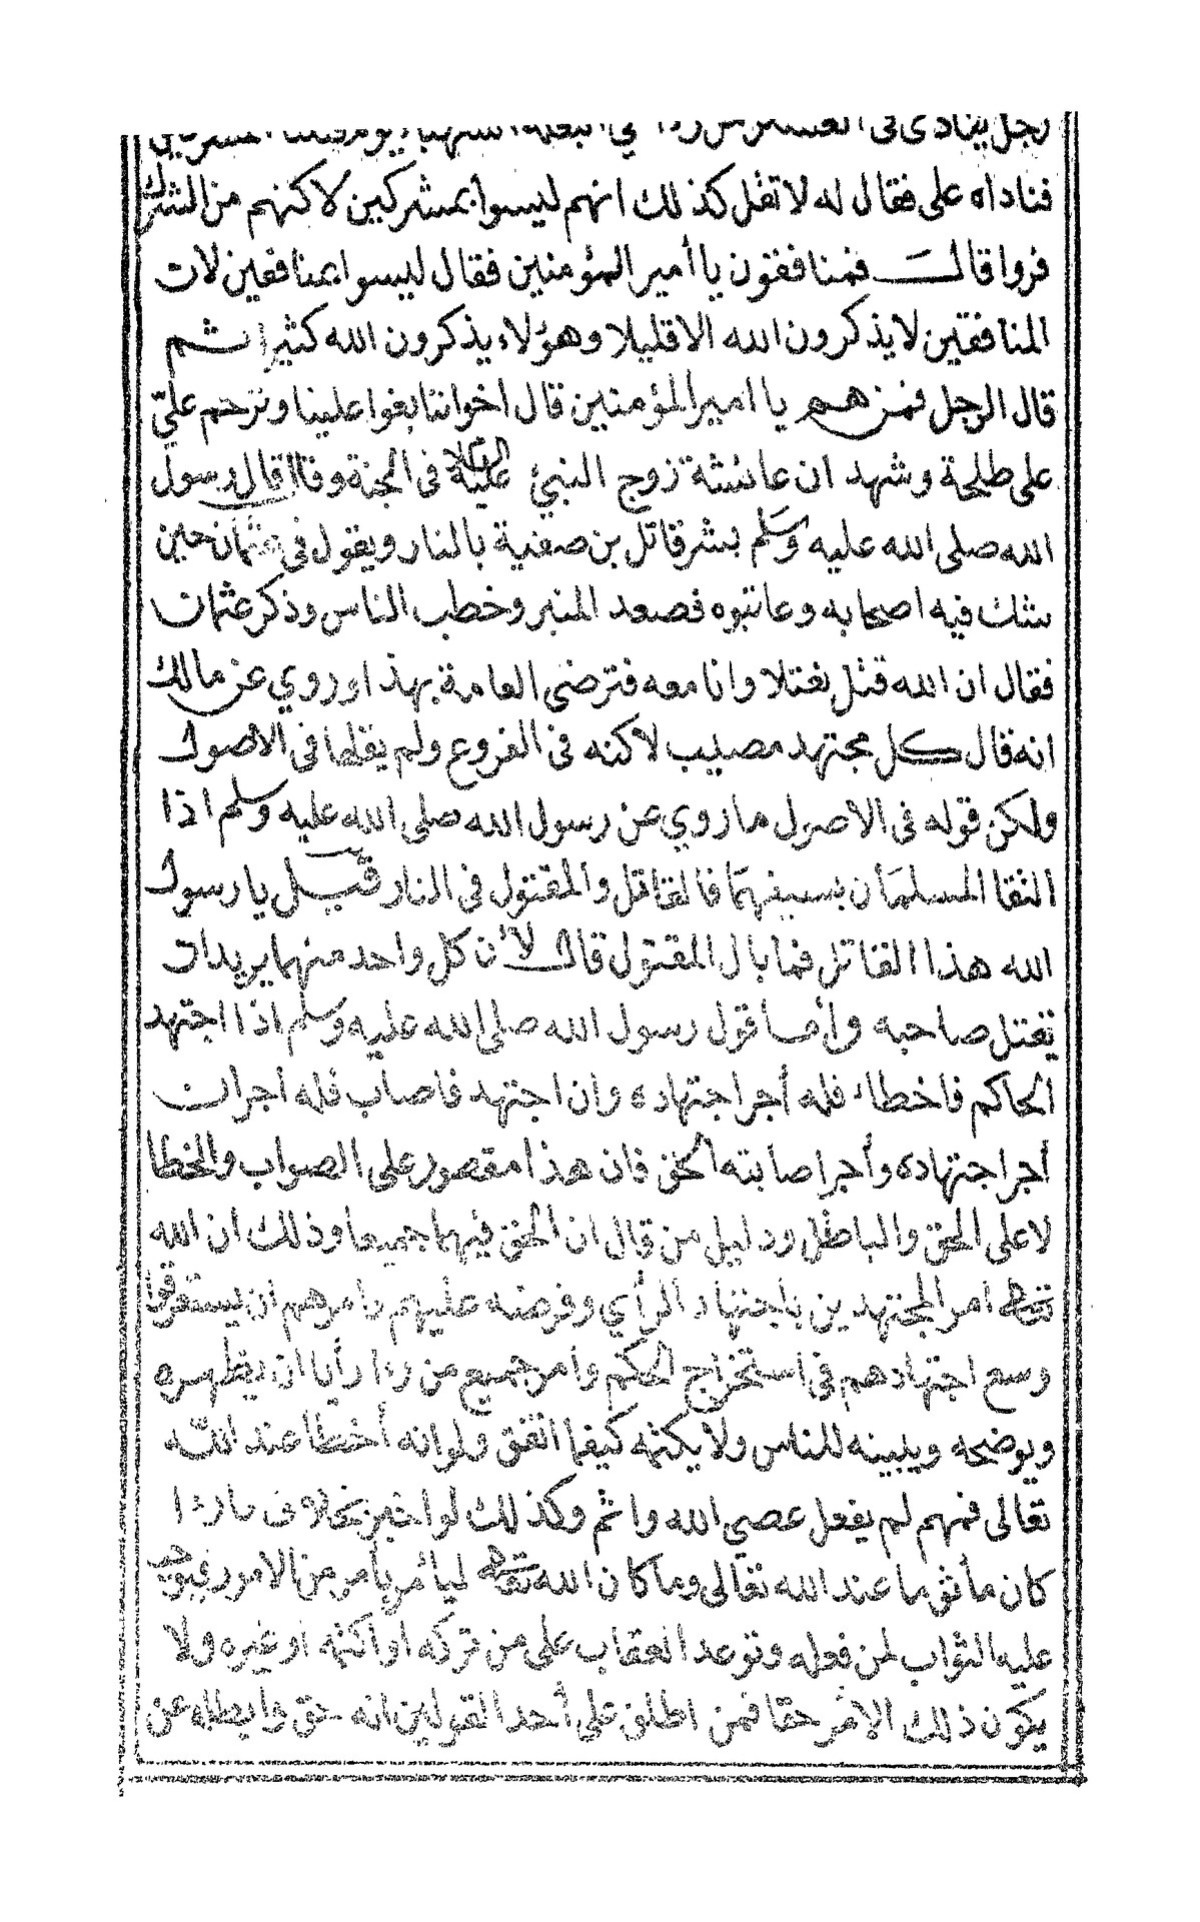 رجل ينادى فى العسكر من رءا لي البغلة الشهباء يوم قتلنا المشركين
فناداه على فقال له لا تقل كذلك انهم ليسوا بمشركين لاكنهم من الشرك
فروا قال فمنافقون يا أمير المؤمنين فقال ليسوا بمنافقين لان
المنافقين لا يذكرون الله الا قليلا وهؤلاء يذكرون الله كثيرا ثم
قال الرجل فمن هم يا امير المؤمنين قال اخواننا بغوا علينا وترحم عليّ
على طلحة وشهد ان عائشة زوج النبيئ عليه السلام فى الجنة وقال قال رسول
الله صلى الله عليه وسلم بشر قاتل بن صفية بالنار ويقول فى عثمان حين
شك فيه اصحابه وعاتبوه فصعد المنبر وخطب الناس وذكر عثمان
فقال ان الله قتل نعتلا وانا معه فترضى العامة بهذا وروي عن مالك
انه قال كل مجتهد مصيب لاكنه فى الفروع ولم يقلها فى الاصول
ولكن قوله فى الاصول ما روي عن رسول الله صلى الله عليه وسلم اذا
التقا المسلمان بسيفهما فالقاتل والمقتول فى النار قيل يا رسول
الله هذا القاتل فما بال المقتول قال لأن كل واحد منهما يريد ان
يقتل صاحبه وأما قول رسول الله صلى الله عليه وسلم اذا اجتهد
الحاكم فاخطاء فله أجر اجتهاده وان اجتهد فاصاب فله اجران
أجر اجتهاده وأجر اصابته الحق فان هذا مقصور على الصواب والخطا
لا على الحق والباطل ودليل من قال ان الحق فيهما جميعا وذلك ان الله
تعالى امر المجتهدين باجتهاد الرأي وفرضه عليهم وامرهم ان يستغرقوا
وسع اجتهادهم فى استخراج الحكم وامر جميع من رءا رأيا ان يظهره
ويوضحه ويبينه للناس ولا يكتمه كيفما اتفق ولو انه أخطا عند الله
تعالى فمهم لم يفعل عصي الله واثم وكذلك لو اخبر بخلاف ما رءا
كان مأثوما عند الله تعالى وما كان الله تعالى ليأمر بأمر من الامور فيوجب
عليه الثواب لمن فعله وتوعد العقاب على من تركه او اكتمه او غيره ولا
يكون ذلك الامر حقا فمن اطلق على أحد القولين انه حق وابطله عن